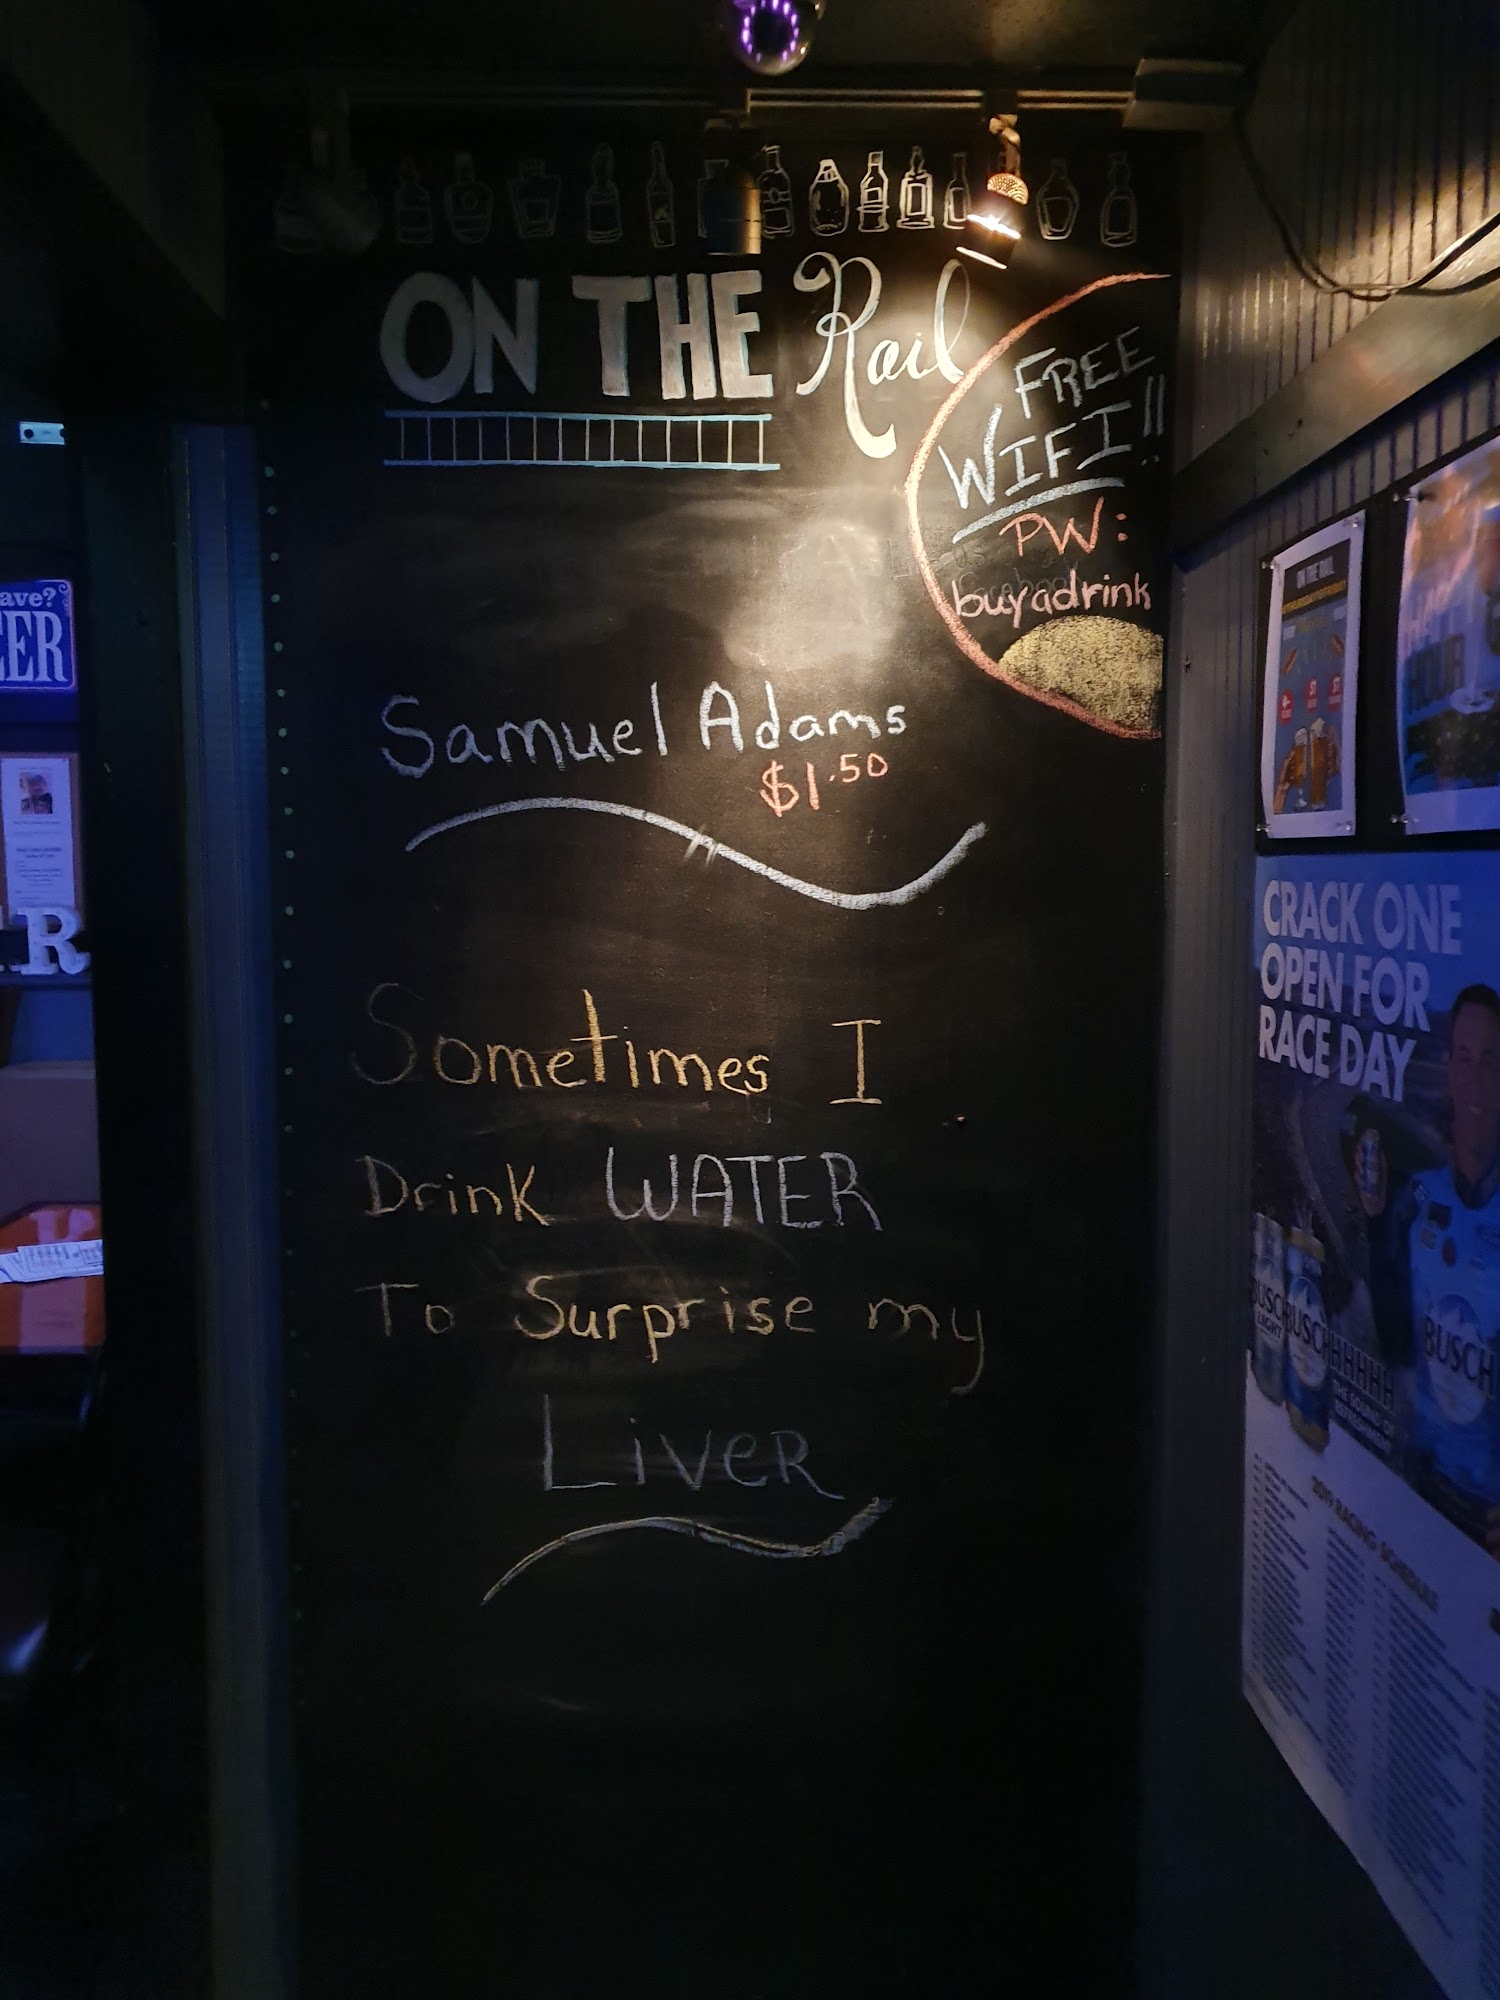 ON THE Rail
FREE
WIFI!!
PW:
buyadrink
Samuel Adams
$1.50
Sometimes I
Drink WATER
To Surprise my
LiveR
ave?
EER
R
ON THE RAIL
CRACK ONE
OPEN FOR
RACE DAY
BUSCH
LIGHT
BUSCHHHHHH
THE SOUND OF
BUSCH
2019 RACING SCHEDULE
HOUR